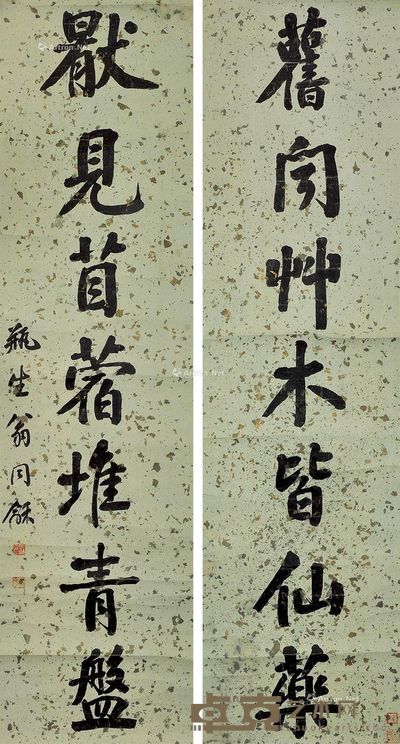 舊聞艸木皆仙藥
猒見苜蓿堆青盤
瓶生翁同龢
Artron.Net